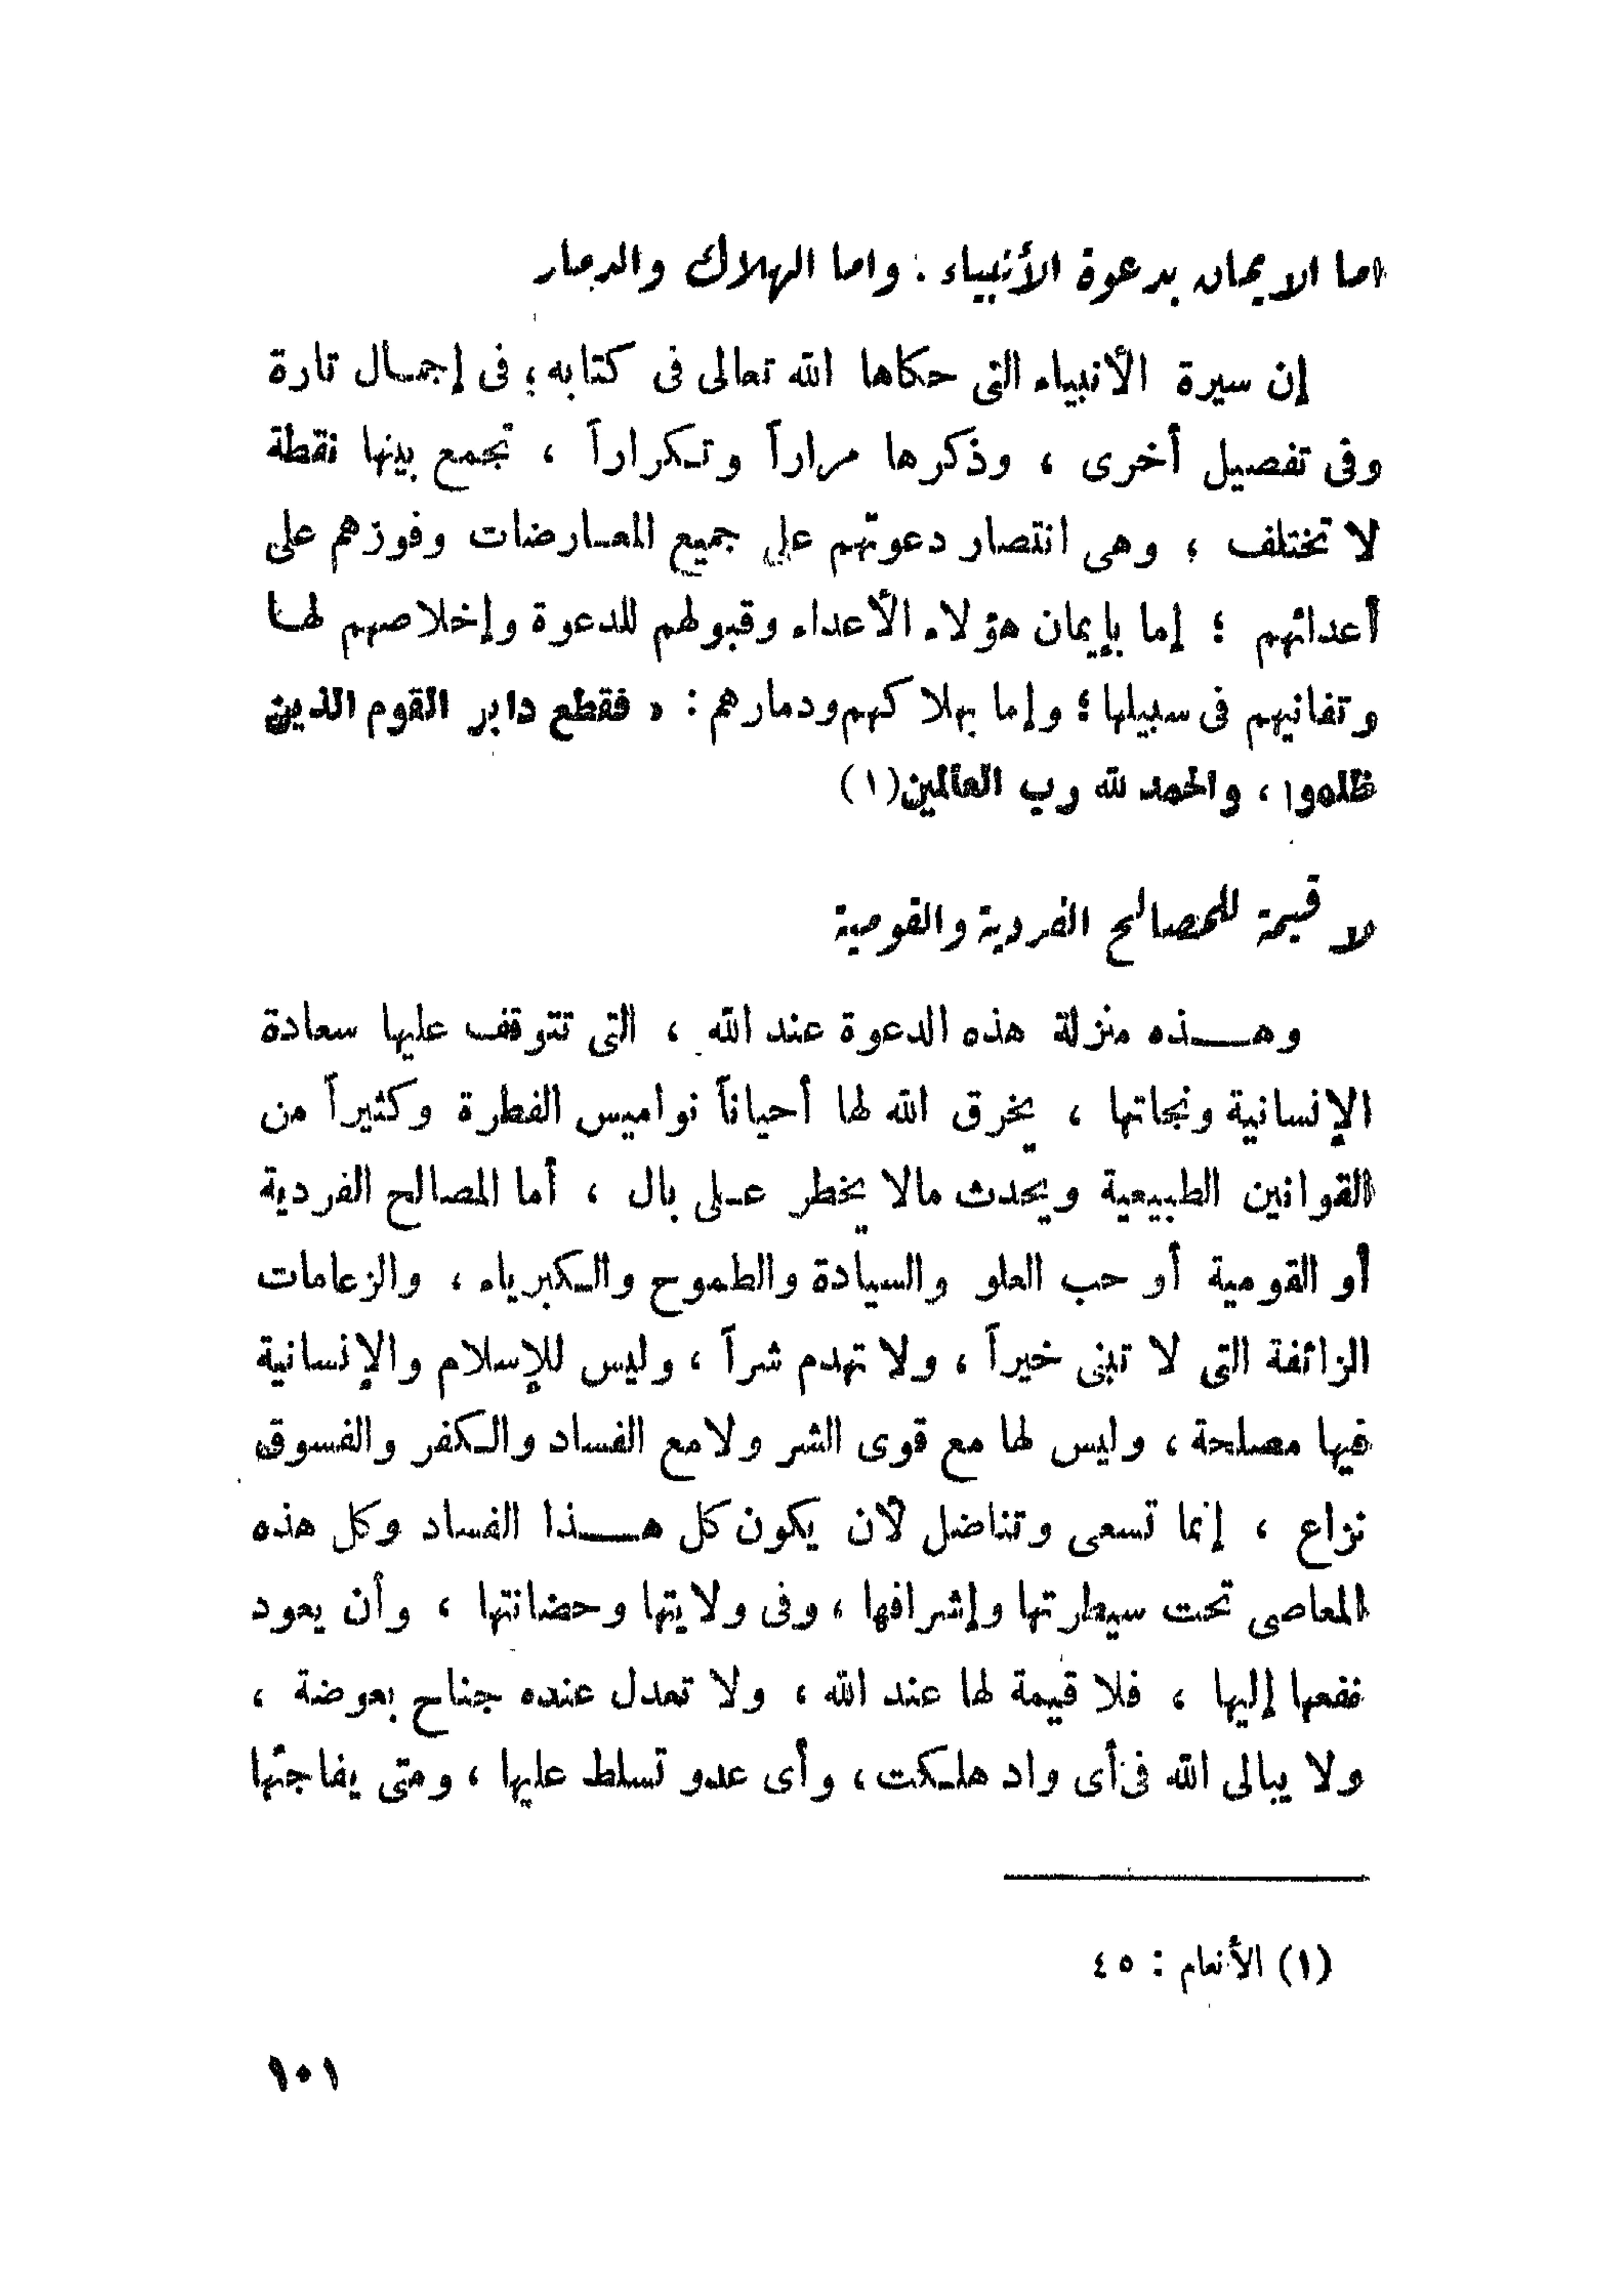 اما الايمان بدعوة الأنبياء : واما الهلاك والدمار
إن سيرة الأنبياء التى حكاها الله تعالى فى كتابه ؛ فى إجمال تارة
وفى تفصيل أخرى ، وذكرها مراراً وتكراراً ، تجمع بينها نقطة
لا تختلف ، وهى انتصار دعوتهم على جميع المعارضات وفوزهم على
أعدائهم ؛ إما بإيمان هؤلاء الأعداء وقبولهم للدعوة وإخلاصهم لها
وتفانيهم فى سبيلها ؛ وإما بهلاكهم ودمارهم : « فقطع دابر القوم الذين
ظلموا ، والحمد لله رب العالمين(١)
لا قيمة للمصالح الفردية والقومية
وهذه منزلة هذه الدعوة عند الله ، التى تتوقف عليها سعادة
الإنسانية ونجاتها ، يخرق الله لها أحياناً نواميس الفطرة وكثيراً من
القوانين الطبيعية ويحدث مالا يخطر على بال ، أما المصالح الفردية
أو القومية أو حب العلو والسيادة والطموح والكبرياء ، والزعامات
الزائفة التى لا تبنى خيراً ، ولا تهدم شراً ، وليس للإسلام والإنسانية
فيها مصلحة ، وليس لها مع قوى الشر ولامع الفساد والكفر والفسوق
نزاع ، إنما تسعى وتناضل لأن يكون كل هذا الفساد وكل هذه
المعاصى تحت سيطرتها وإشرافها ، وفى ولايتها وحضانتها ، وأن يعود
نفعها إليها ، فلا قيمة لها عند الله ، ولا تعدل عنده جناح بعوضة ،
ولا يبالى الله فى أى واد هلكت ، وأى عدو تسلط عليها ، ومتى يفاجئها
(١) الأنعام : ٤٥
١٠١